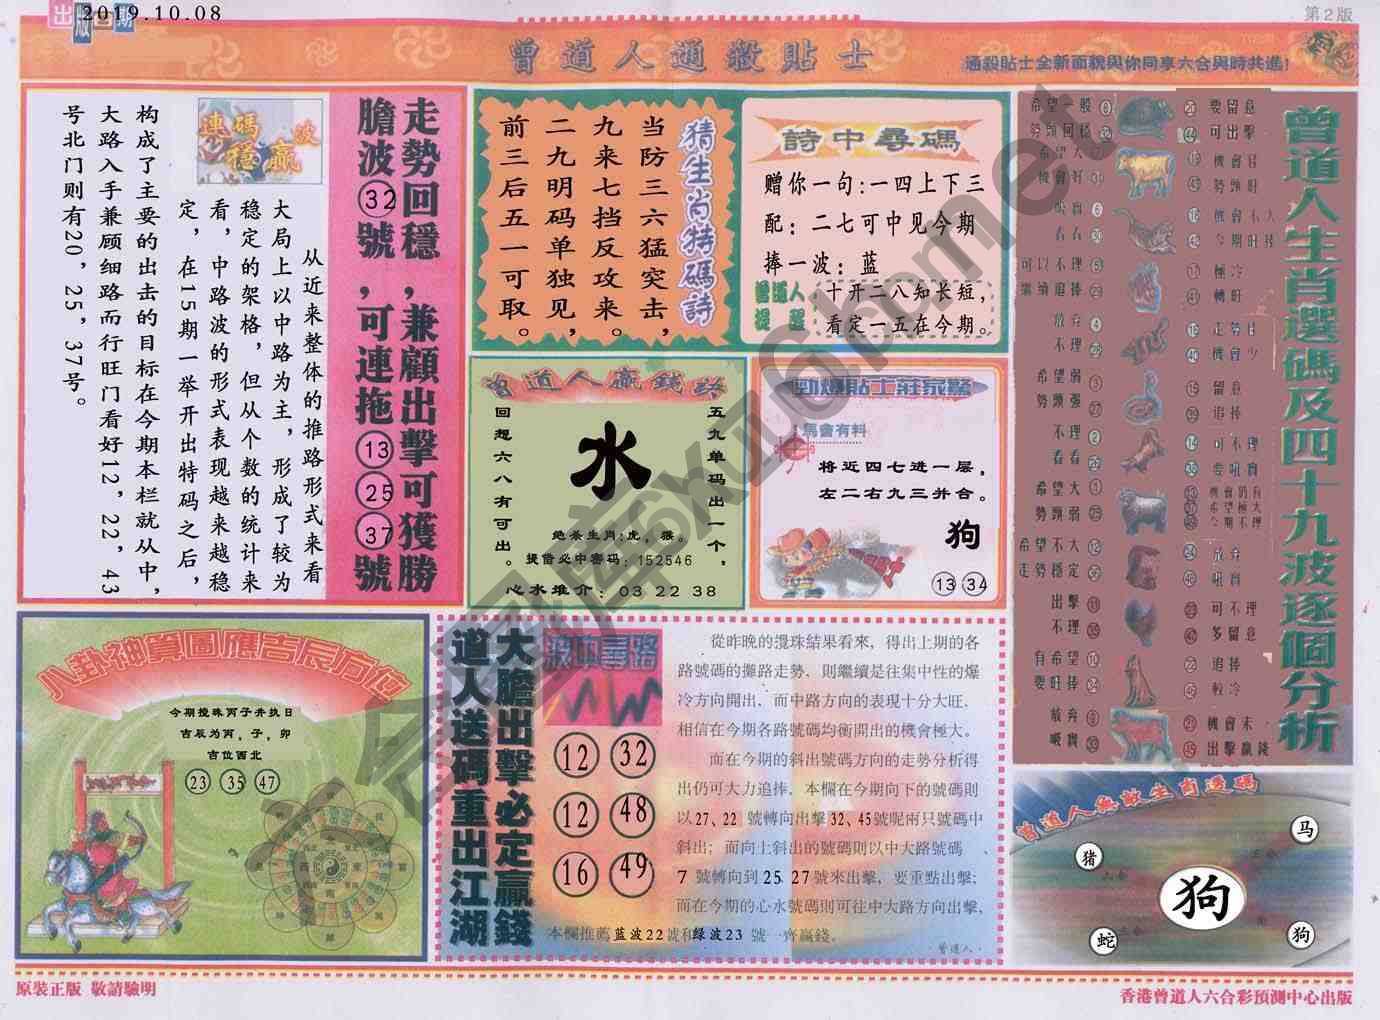 出版日期
2019.10.08
第2版
曾道人通殺貼士
通殺貼士全新面貌與你同享六合與時共進!
走勢回穩,兼顧出擊可獲勝
膽波32號,可連拖13 25 37號
連碼穩贏波
从近来整体的推路形式来看
大局上以中路为主,形成了较为
稳定的架格,但从个数的统计来
看,中路波的形式表现越来越稳
定,在15期一举开出特码之后,
构成了主要的出击的目标在今期本栏就从中,
大路入手兼顾细路而行旺门看好12,22,43
号北门则有20,25,37号。
猜生肖特碼詩
当防三六猛突击,
九来七挡反攻来。
二九明码单独见,
前三后五一可取。
詩中尋碼
赠你一句:一四上下三
配:二七可中见今期
捧一波:蓝
曾道人提醒
十开二八知长短,
看定一五在今期。
曾道人贏錢路
五九单码出一个,
回想六八有可出。
水
绝杀生肖:虎,猴。
提借必中密码:152546
心水堆介:03 22 38
勁爆貼士莊家驚
馬會有料
将近四七进一层,
左二右九三并合。
狗
13 34
曾道人生肖選碼及四十九波逐個分析
希望一般
勢頭回穩
希望大
機會好
可以不理
繼續追捧
放弃
不理
希望弱
勢頭强
不理
看看
希望大
勢頭弱
希望不大
走勢穩定
出擊
不理
有希望
要旺捧
放弃
吸實
要留意
可出擊
勢頭旺
今期旺捧
極冷
轉旺
機會少
留意
追捧
可不理
可不理
多留意
追捧
較冷
出擊贏錢
八卦神算圖應吉辰方位
今期搅珠丙子并执日
吉辰为丙,子,卯
吉位西北
23 35 47
大膽出擊必定贏錢
道人送碼重出江湖
波中尋路
12 32
12 48
16 49
從昨晚的攪珠結果看來,得出上期的各
路號碼的攤路走勢,則繼續是往集中性的爆
冷方向開出,而中路方向的表現十分大旺,
相信在今期各路號碼均衡開出的機會極大。
而在今期的斜出號碼方向的走勢分析得
出仍可大力追捧,本欄在今期向下的號碼則
以27、22號轉向出擊32、45號呢兩只號碼中
斜出;而向上斜出的號碼則以中大路號碼
7號轉向到25 27號來出擊,要重點出擊;
而在今期的心水號碼則可往中大路方向出擊,
本欄推薦蓝波22號和绿波23號一齊贏錢。
·曾道人·
曾道人無敵生肖選碼
马
猪
狗
蛇
狗
原裝正版 敬請驗明
香港曾道人六合彩預測中心出版